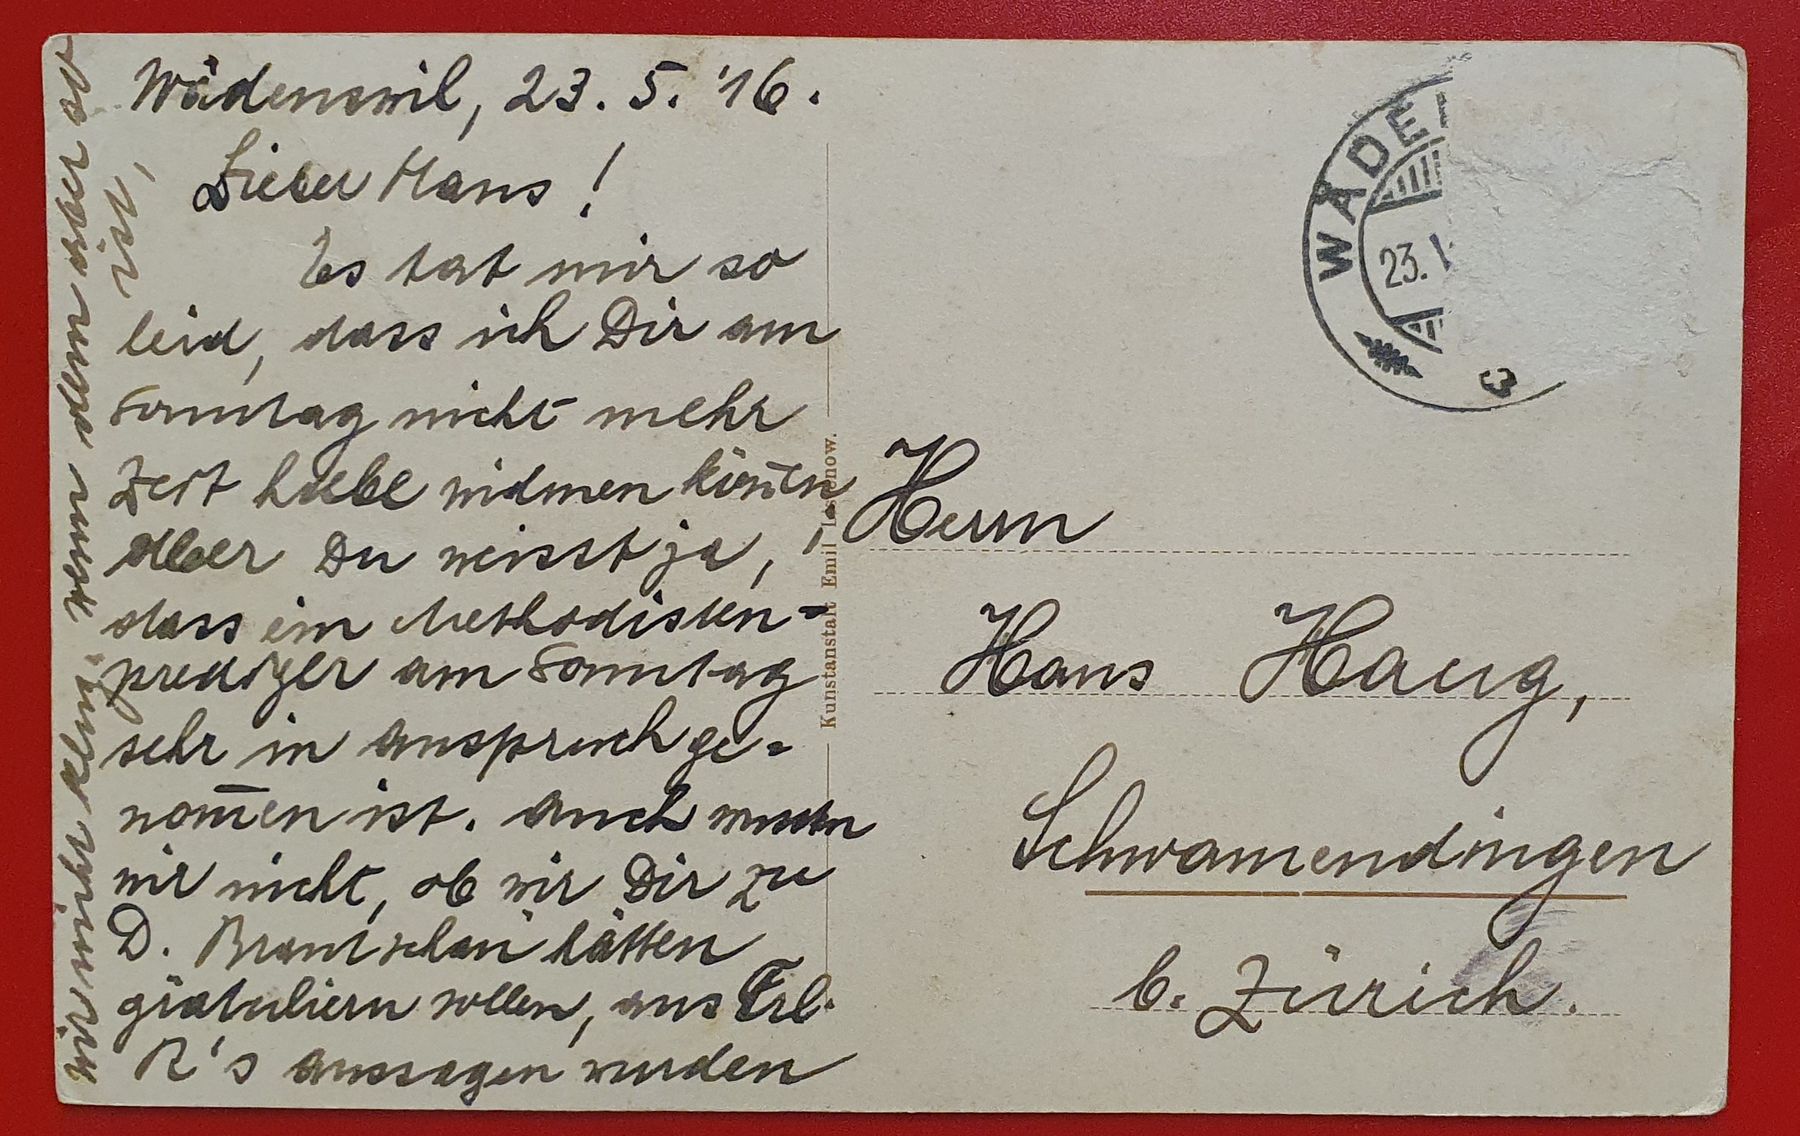 Wädenswil, 23. 5. '16.
Lieber Hans!
Es tat mir so
leid, dass ich Dir am
Sonntag nicht mehr
Zeit habe widmen kön̄en,
aber Du weisst ja,
dass ein Methodisten=
prediger am Sonntag
sehr in anspruch ge=
nom̄en ist. Auch wussten
wir nicht, ob wir Dir zu
D. hätten
gratuliern sollen, aus Frl.
R's aussagen wurden
wir nicht klug. wenn dem aber so
ist,
WÄDE
23. V
3
Kunstanstalt Emil
Herrn
Hans Haug,
Schwamendingen
b. Zürich.